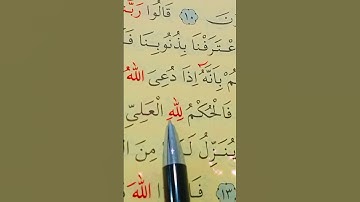 نَ ١٠ قَالُوا رَبَّ
عْتَرَفْنَا بِذُنُوبِنَا فَ
مْ بِاَنَّهُٓ اِذَا دُعِيَ اللّٰهُ
فَالْحُكْمُ لِلّٰهِ الْعَلِيِّ
يُنَزِّلُ مِنَ
اللّٰهَ ١٣